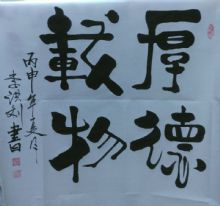 厚德
載物
丙申年夏月
李洪剑書